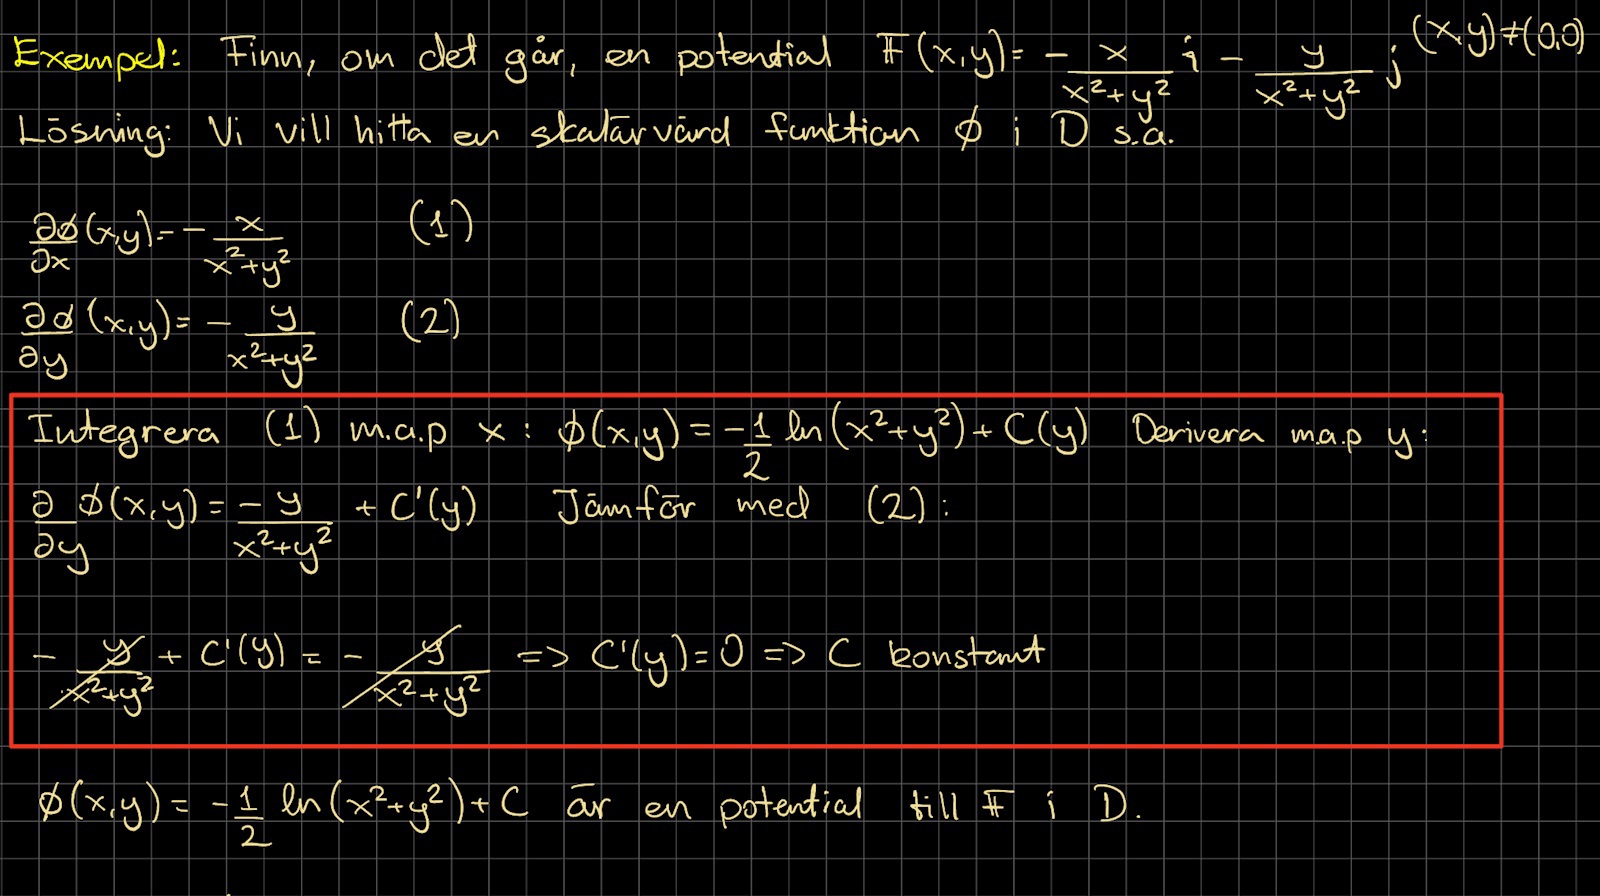 Exempel: Finn, om det går, en potential F(x,y)= - x/(x²+y²) i - y/(x²+y²) j (x,y)≠(0,0)
Lösning: Vi vill hitta en skalärvärd funktion ϕ i D s.a.
∂ϕ/∂x (x,y)= - x/(x²+y²) (1)
∂ϕ/∂y (x,y)= - y/(x²+y²) (2)
Integrera (1) m.a.p x: ϕ(x,y)= -1/2 ln(x²+y²)+C(y) Derivera m.a.p y:
∂/∂y ϕ(x,y)= -y/(x²+y²) + C'(y) Jämför med (2):
- y/(x²+y²) + C'(y) = - y/(x²+y²) => C'(y)=0 => C konstant
ϕ(x,y)= -1/2 ln(x²+y²)+C är en potential till F i D.